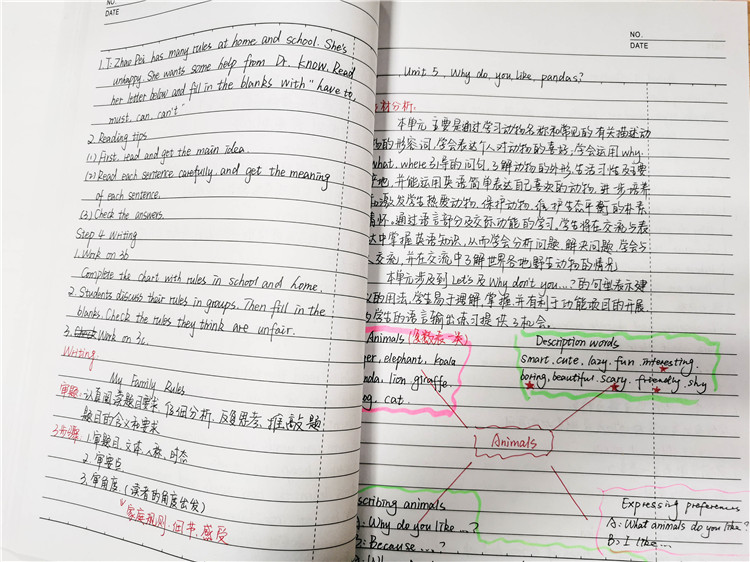 NO.
DATE
1. T: Zhao Pei has many rules at home and school. She's
unhappy. She wants some help from Dr. Know. Read
her letter below and fill in the blanks with "have to,
must, can, can't"
2. Reading tips
(1) First, read and get the main idea.
(2) Read each sentence carefully and get the meaning
of each sentence.
(3) Check the answers.
Step 4 Writing
1. Work on 3b
Complete the chart with rules in school and home.
2. Students discuss their rules in groups. Then fill in the
blanks. Check the rules they think are unfair.
3. Work on 3c
Writing:
My Family Rules
审题: 认真阅读题目要求, 仔细分析, 反复思考, 推敲题
题目的含义和要求
3步骤: 1. 审题目, 文体, 人称, 时态
2. 审要点
3. 审角度 (读者的角度出发)
家庭规则: 细节, 感受
NO.
DATE
Unit 5, Why do you like pandas?
材分析:
本单元主要是通过学习动物名称和常见的有关描述动
物的形容词, 学会表达个人对动物的喜好, 学会运用 why,
what, where 引导的问句, 了解动物的外形, 生活习性及主要
产地, 并能运用英语简单表达自己喜欢的动物, 进步培养
和激发学生热爱动物, 保护动物, 保护生态平衡的本素
情怀, 通过语言部分及交际功能的学习, 学生将在交流与表
达中掌握英语知识, 从而学会分析问题, 解决问题, 学会与
交流, 并在交流中了解世界各地野生动物的情况
本单元涉及到 Let's 及 Why don't you...? 的句型表示建
议的用法, 学生易于理解, 掌握并有利于功能项目的开展,
为学生的语言输出练习提供了机会.
Animals (复数表一类)
er, elephant, koala
nda, lion giraffe.
og, cat.
Description words
smart. cute. lazy. fun. interesting.
boring. beautiful. scary. friendly. shy
Animals
scribing animals
A: Why do you like ...?
B: Because ...?
Expressing preferences
A: What animals do you like?
B: I like ...